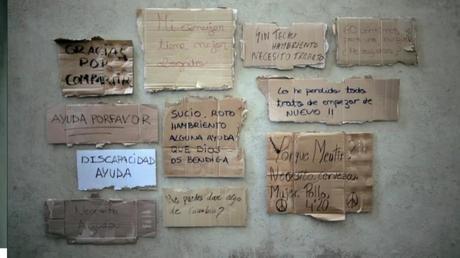 GRACIAS
POR
COMPARTIR
Mi corazon
tiene mejor
aspecto
SIN TECHO
HAMBRIENTO
NECESITO TRABAJO
AYUDA PORFAVOR
SUCIO, ROTO
HAMBRIENTO
ALGUNA AYUDA?
QUE DIOS
OS BENDIGA
Lo he perdido todo
trato de empezar de
NUEVO !!
DISCAPACIDAD
AYUDA
Porque Mentir
Necesito cerveza,
Mujer, Pollo,
4:20
Necesito
Me puedes dar algo
de Cambio?